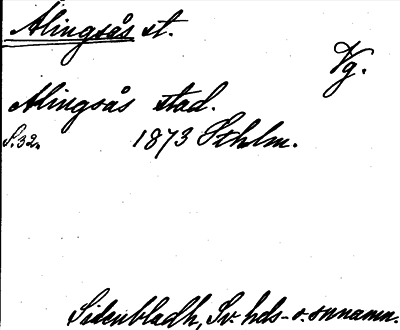 Alingsås st.
Vg.
Alingsås stad.
S. 32. 1873 Sthlm.
Sidenbladh, Sv. hds- o. snnamn.